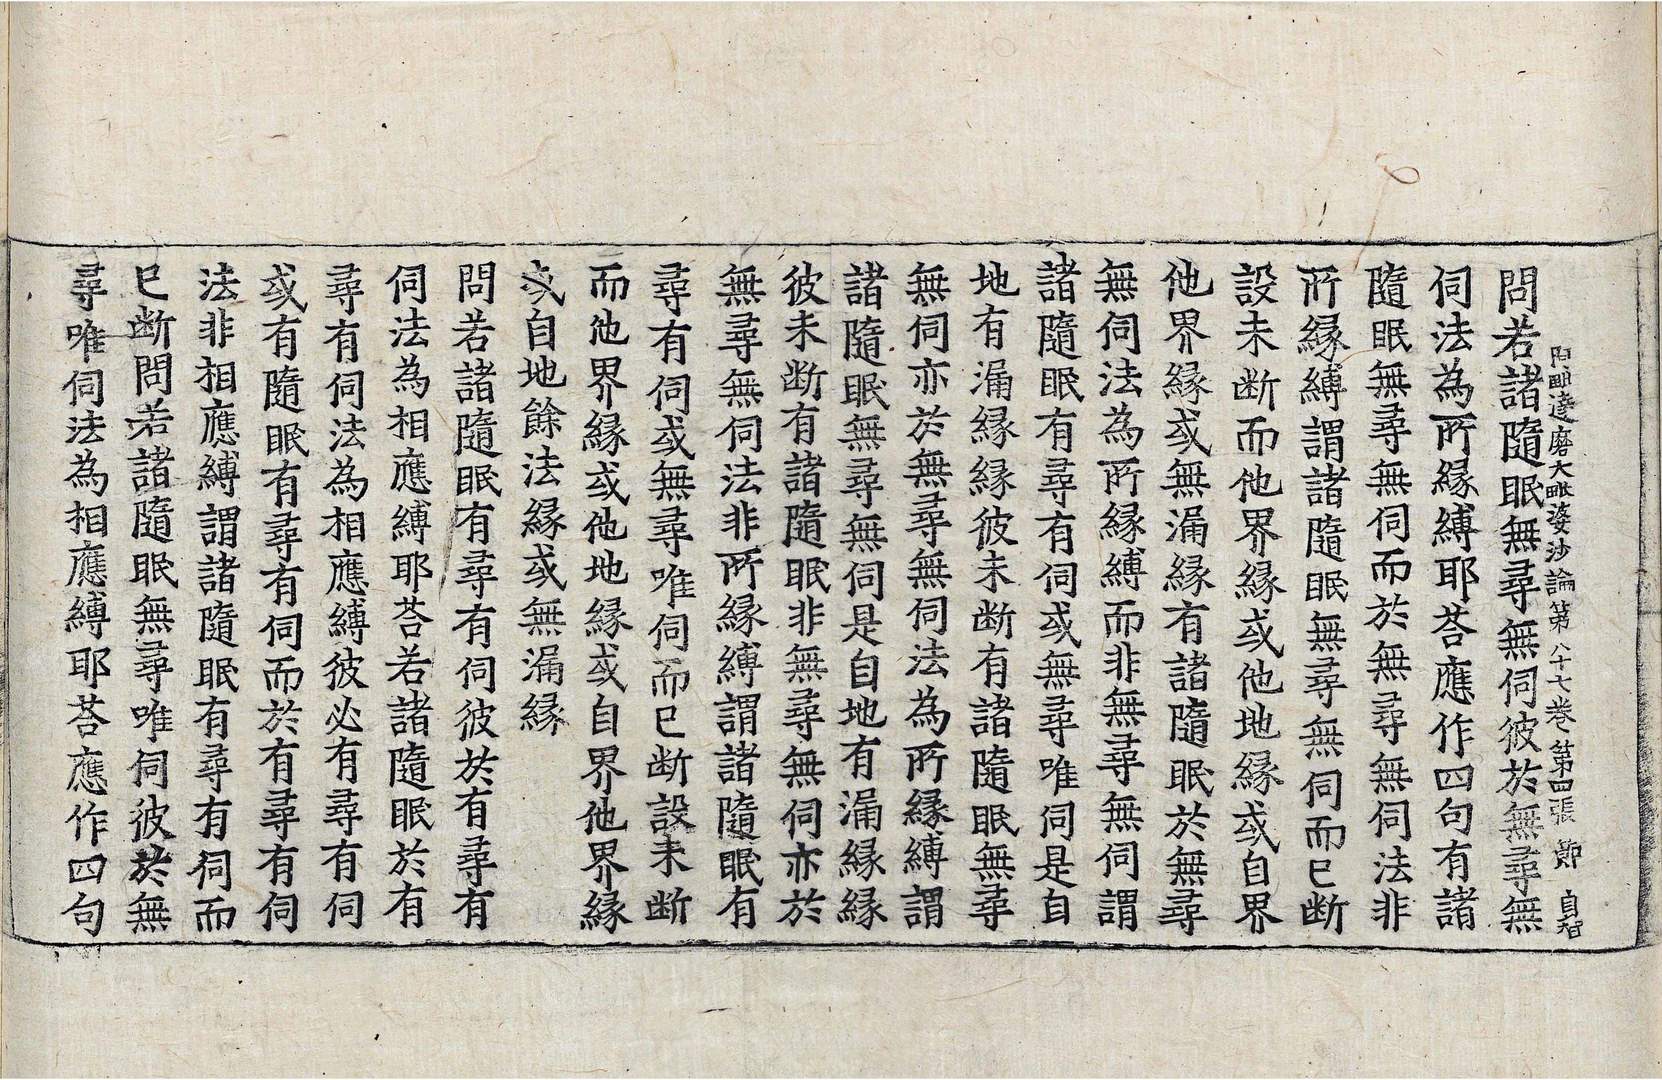 阿毗達磨大毗婆沙論第八十七卷 第四張 節 自智
問若諸隨眠無尋無伺彼於無尋無
伺法為所緣縛耶荅應作四句有諸
隨眠無尋無伺而於無尋無伺法非
所緣縛謂諸隨眠無尋無伺而已断
設未断而他界緣或他地緣或自界
他界緣或無漏緣有諸隨眠於無尋
無伺法為所緣縛而非無尋無伺謂
諸隨眠有尋有伺或無尋唯伺是自
地有漏緣緣彼未断有諸隨眠無尋
無伺亦於無尋無伺法為所緣縛謂
諸隨眠無尋無伺是自地有漏緣緣
彼未断有諸隨眠非無尋無伺亦於
無尋無伺法非所緣縛謂諸隨眠有
尋有伺或無尋唯伺而已断設未断
而他界緣或他地緣或自界他界緣
或自地餘法緣或無漏緣
問若諸隨眠有尋有伺彼於有尋有
伺法為相應縛耶荅若諸隨眠於有
尋有伺法為相應縛彼必有尋有伺
或有隨眠有尋有伺而於有尋有伺
法非相應縛謂諸隨眠有尋有伺而
已断問若諸隨眠無尋唯伺彼於無
尋唯伺法為相應縛耶荅應作四句